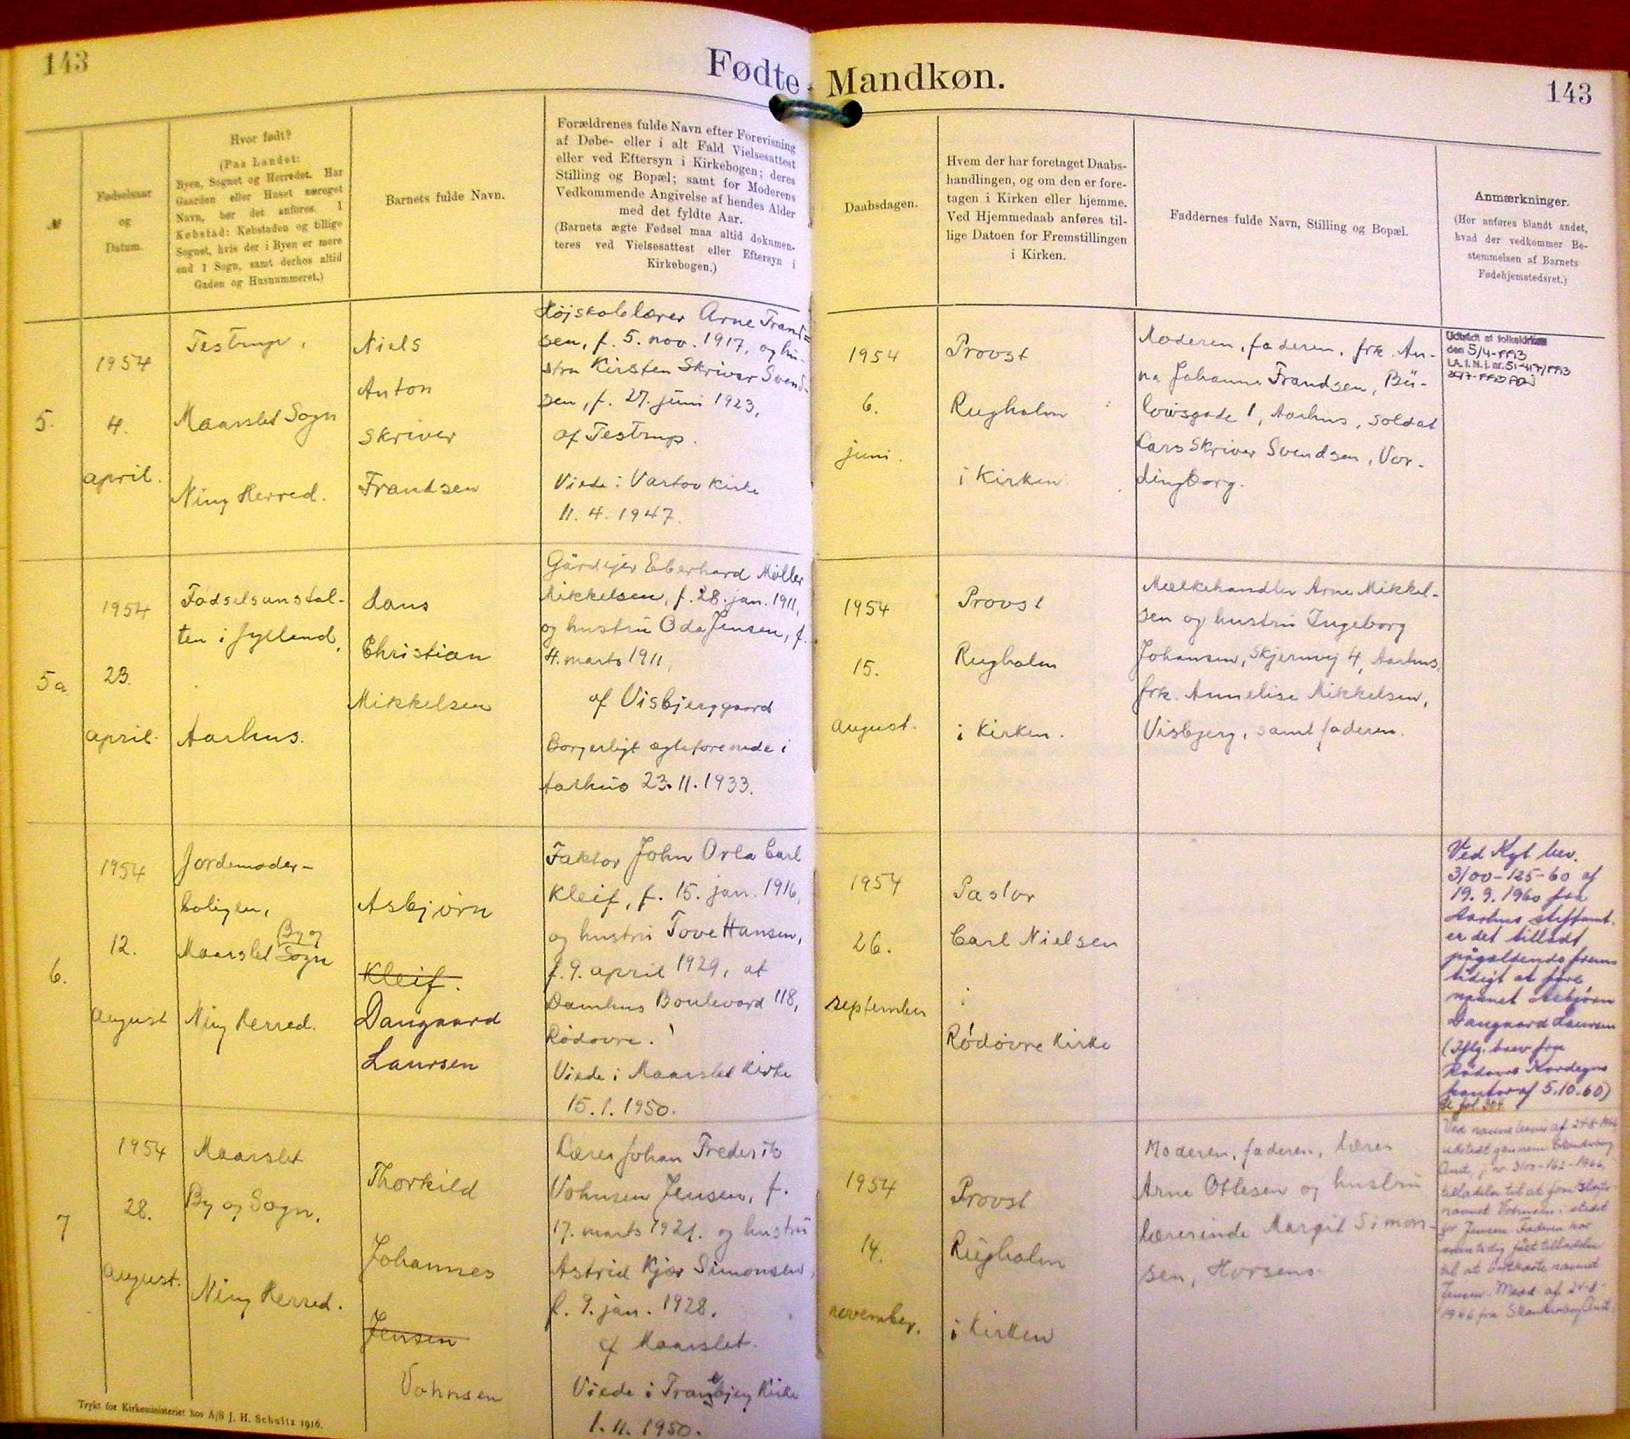 143
Fødte
Mandkøn.
143
№
Fødselsaar
og
Datum.
Hvor født?
(Paa Landet:
Byen, Sognet og Herredet. Har
Gaarden eller Huset særeget
Navn, bør det anføres. I
Købstad: Købstaden og tillige
Sognet, hvis der i Byen er mere
end 1 Sogn, samt derhos altid
Gaden og Husnummeret.)
Barnets fulde Navn.
Forældrenes fulde Navn efter Forevisning
af Døbe- eller i alt Fald Vielsesattest
eller ved Eftersyn i Kirkebogen; deres
Stilling og Bopæl; samt for Moderens
Vedkommende Angivelse af hendes Alder
med det fyldte Aar.
(Barnets ægte Fødsel maa altid dokumen-
teres ved Vielsesattest eller Eftersyn i
Kirkebogen.)
Daabsdagen.
Hvem der har foretaget Daabs-
handlingen, og om den er fore-
tagen i Kirken eller hjemme.
Ved Hjemmedaab anføres til-
lige Datoen for Fremstillingen
i Kirken.
Faddernes fulde Navn, Stilling og Bopæl.
Anmærkninger.
(Her anføres blandt andet,
hvad der vedkommer Be-
stemmelsen af Barnets
Fødehjemstedsret.)
5.
1954
4.
april.
Testrup,
Maarslet Sogn
Ning Herred.
Niels
Anton
Skriver
Frandsen
Højskolelærer Arne Frand=
sen, f. 5. nov. 1917, og hu-
stru Kirsten Skriver Svend-
sen, f. 27. juni 1923,
af Testrup.
Viede i Vartov Kirke
11. 4. 1947.
1954
6.
juni.
Provst
Rugholm
i Kirken
Moderen, faderen, frk. An-
na Johanne Frandsen, Bü-
lowsgade 1, Aarhus, soldat
Lars Skriver Svendsen, Vor-
dingborg.
Udtrådt af folkekirken
den 5/4-1993
5a
1954
23.
april.
Fødselsanstal-
ten i Jylland,
Aarhus.
Hans
Christian
Mikkelsen
Gårdejer Eberhard Møller
Mikkelsen, f. 28. jan. 1911,
og hustru Oda Jensen, f.
4. marts 1911,
af Visbjerggaard
Borgerligt ægteforenede i
Aarhus 23.11.1933.
1954
15.
august.
Provst
Rugholm
i Kirken.
Mælkehandler Arne Mikkel-
sen og hustru Ingeborg
Johansen, Skjernvej 4, Aarhus,
frk. Annelise Mikkelsen,
Visbjerg, samt faderen.
6.
1954
12.
august
Jordemoder-
boligen,
Maarslet By og
Sogn
Ning Herred.
Asbjørn
Kleif.
Daugaard
Laursen
Faktor John Orla Carl
Kleif, f. 15. jan. 1916,
og hustru Tove Hansen,
f. 9. april 1929, af
Damhus Boulevard 118,
Rødovre.
Viede i Maarslet Kirke
15.1.1950.
1954
26.
september
Pastor
Carl Nielsen
i
Rødovre Kirke
Ved Kgl. bev.
3100-125-60 af
19. 9. 1960 fra
Aarhus stiftamt.
er det tilladt
pågældende frem-
tidigt at føre
navnet Asbjørn
Daugaard Laursen
(Iflg. brev fra
Rødovre Kordegne
kontor af 5.10.60)
7
1954
28.
august.
Maarslet
By og Sogn,
Ning Herred.
Thorkild
Johannes
Jensen
Vohnsen
Lærer Johan Frederik
Vohnsen Jensen, f.
17. marts 1921. og hustru
Astrid Kjær Simonsen,
f. 9. jan. 1928.
af Maarslet.
Viede i Tranebjerg Kirke
1.11.1950.
1954
14.
november.
Provst
Rugholm
i Kirken
Moderen, faderen, lærer
Arne Ottesen og hustru
lærerinde Margit Simon-
sen, Horsens.
Ved navnebevis af 24-8-1966
udstedt gennem Skanderborg
Amt, j. nr. 3100-162-1966,
tilladelse til at føre slægts-
navnet Vohnsen i stedet
for Jensen. Faderen har
samtidig fået tilladelse
til at bortkaste navnet
Jensen. Medd. af 24-8-
1966 fra Skanderborg Amt.
Trykt for Kirkeministeriet hos A/S J. H. Schultz 1916.